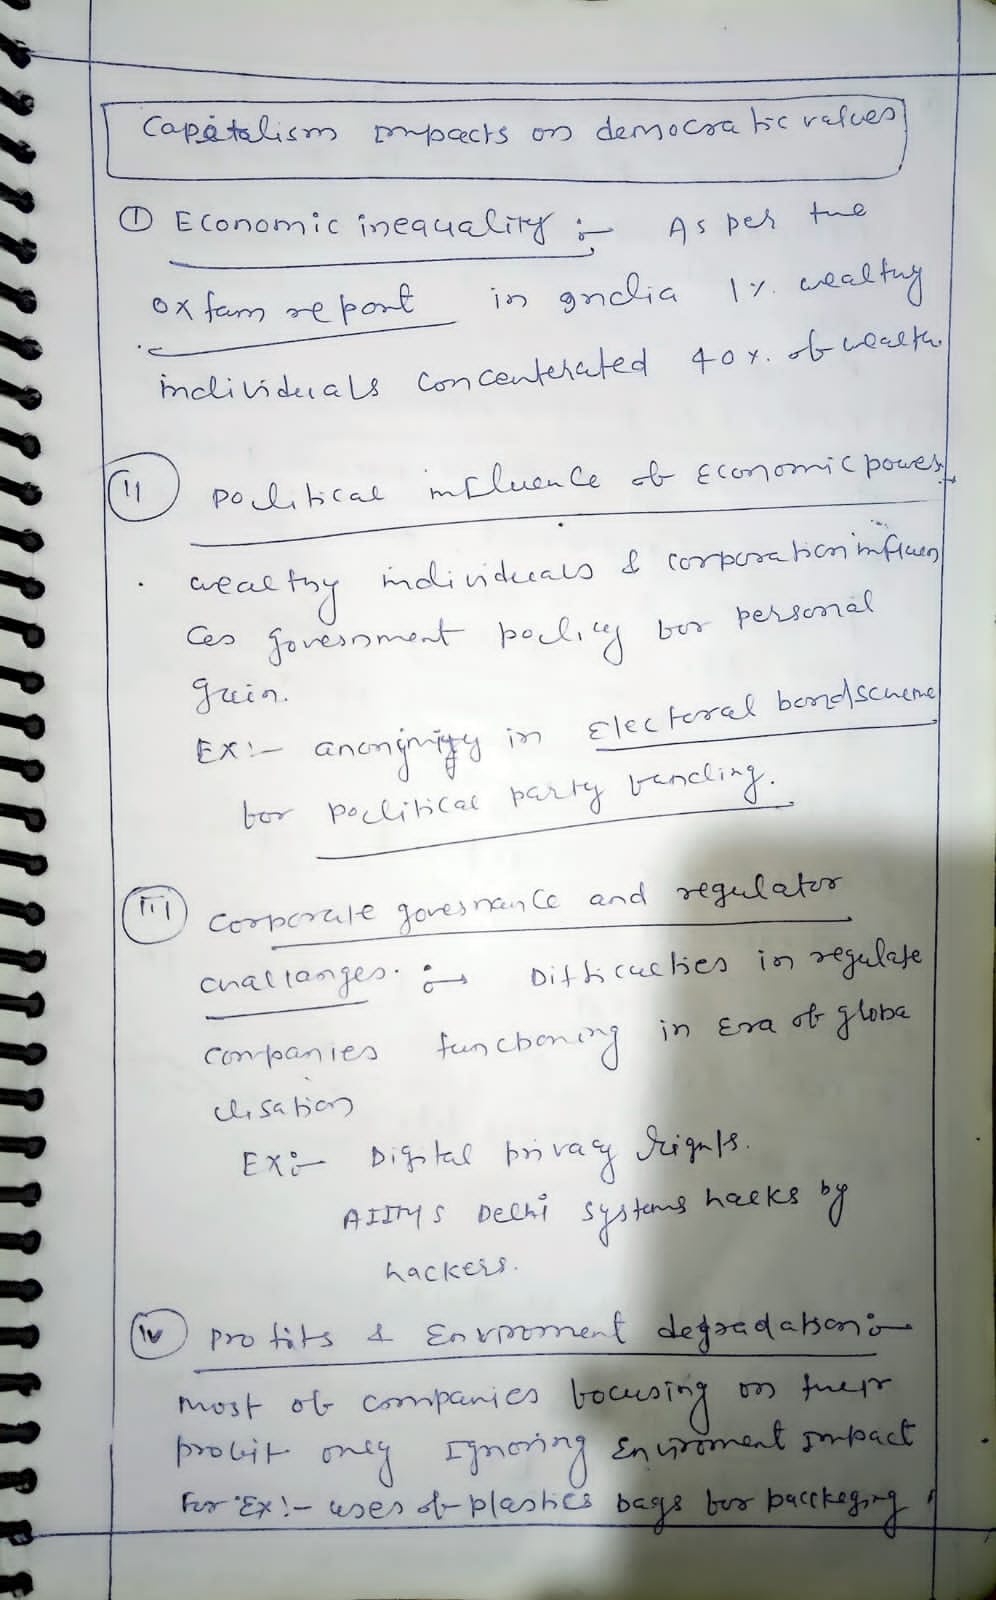 Capitalism Impacts on democratic values
① Economic inequality :- As per the
oxfam report in india 1% wealthy
individuals concenterated 40% of wealth
ii political influence of Economic power
wealthy individuals & corporation influen
ces government policy for personal
gain.
EX:- anonymity in Electoral bond scheme
for political party funding.
iii corporate governance and regulator
challanges. :- Difficulties in regulate
companies functioning in Era of globa
lisation
Ex:- Digital privacy rights.
AIIMS Delhi systems hacks by
hackers.
iv profits & Enviroment degradation :-
most of companies focusing on their
profit only Ignoring Enviroment impact
For Ex:- uses of plastics bags for packkeging